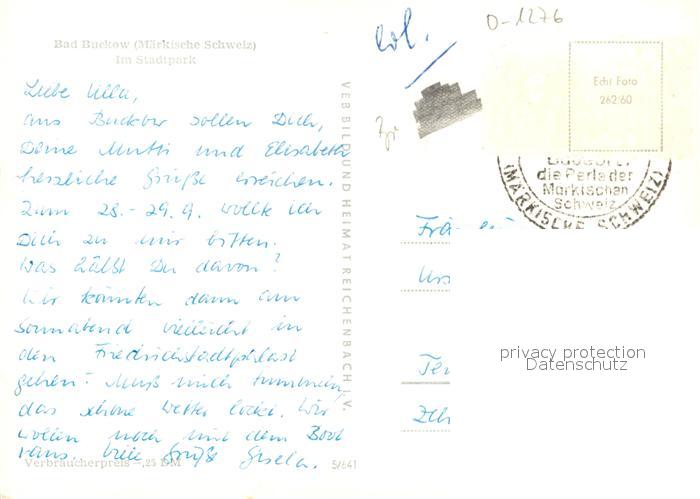 Bad Buckow (Märkische Schweiz)
Im Stadtpark
Liebe Ulla,
aus Buckow sollen Dich,
Deine Mutti und Elisabeth
herzliche Grüße erreichen.
Zum 28.-29.9. wollte ich
Dich zu mir bitten.
Was hälst Du davon?
Wir könnten dann am
Sonnabend vielleicht in
den Friedrichstadtpalast
gehen. Muß mich tummeln,
das schöne Wetter lockt. Wir
wollen noch mit dem Boot
raus. Viele Grüße Gisela.
Verbraucherpreis —,25 DM
5/641
VEB BILD UND HEIMAT REICHENBACH I. V.
col.
O-1276
Echt Foto
262/60
die Perle der
Märkischen
Schweiz
(MÄRKISCHE SCHWEIZ)
privacy protection
Datenschutz